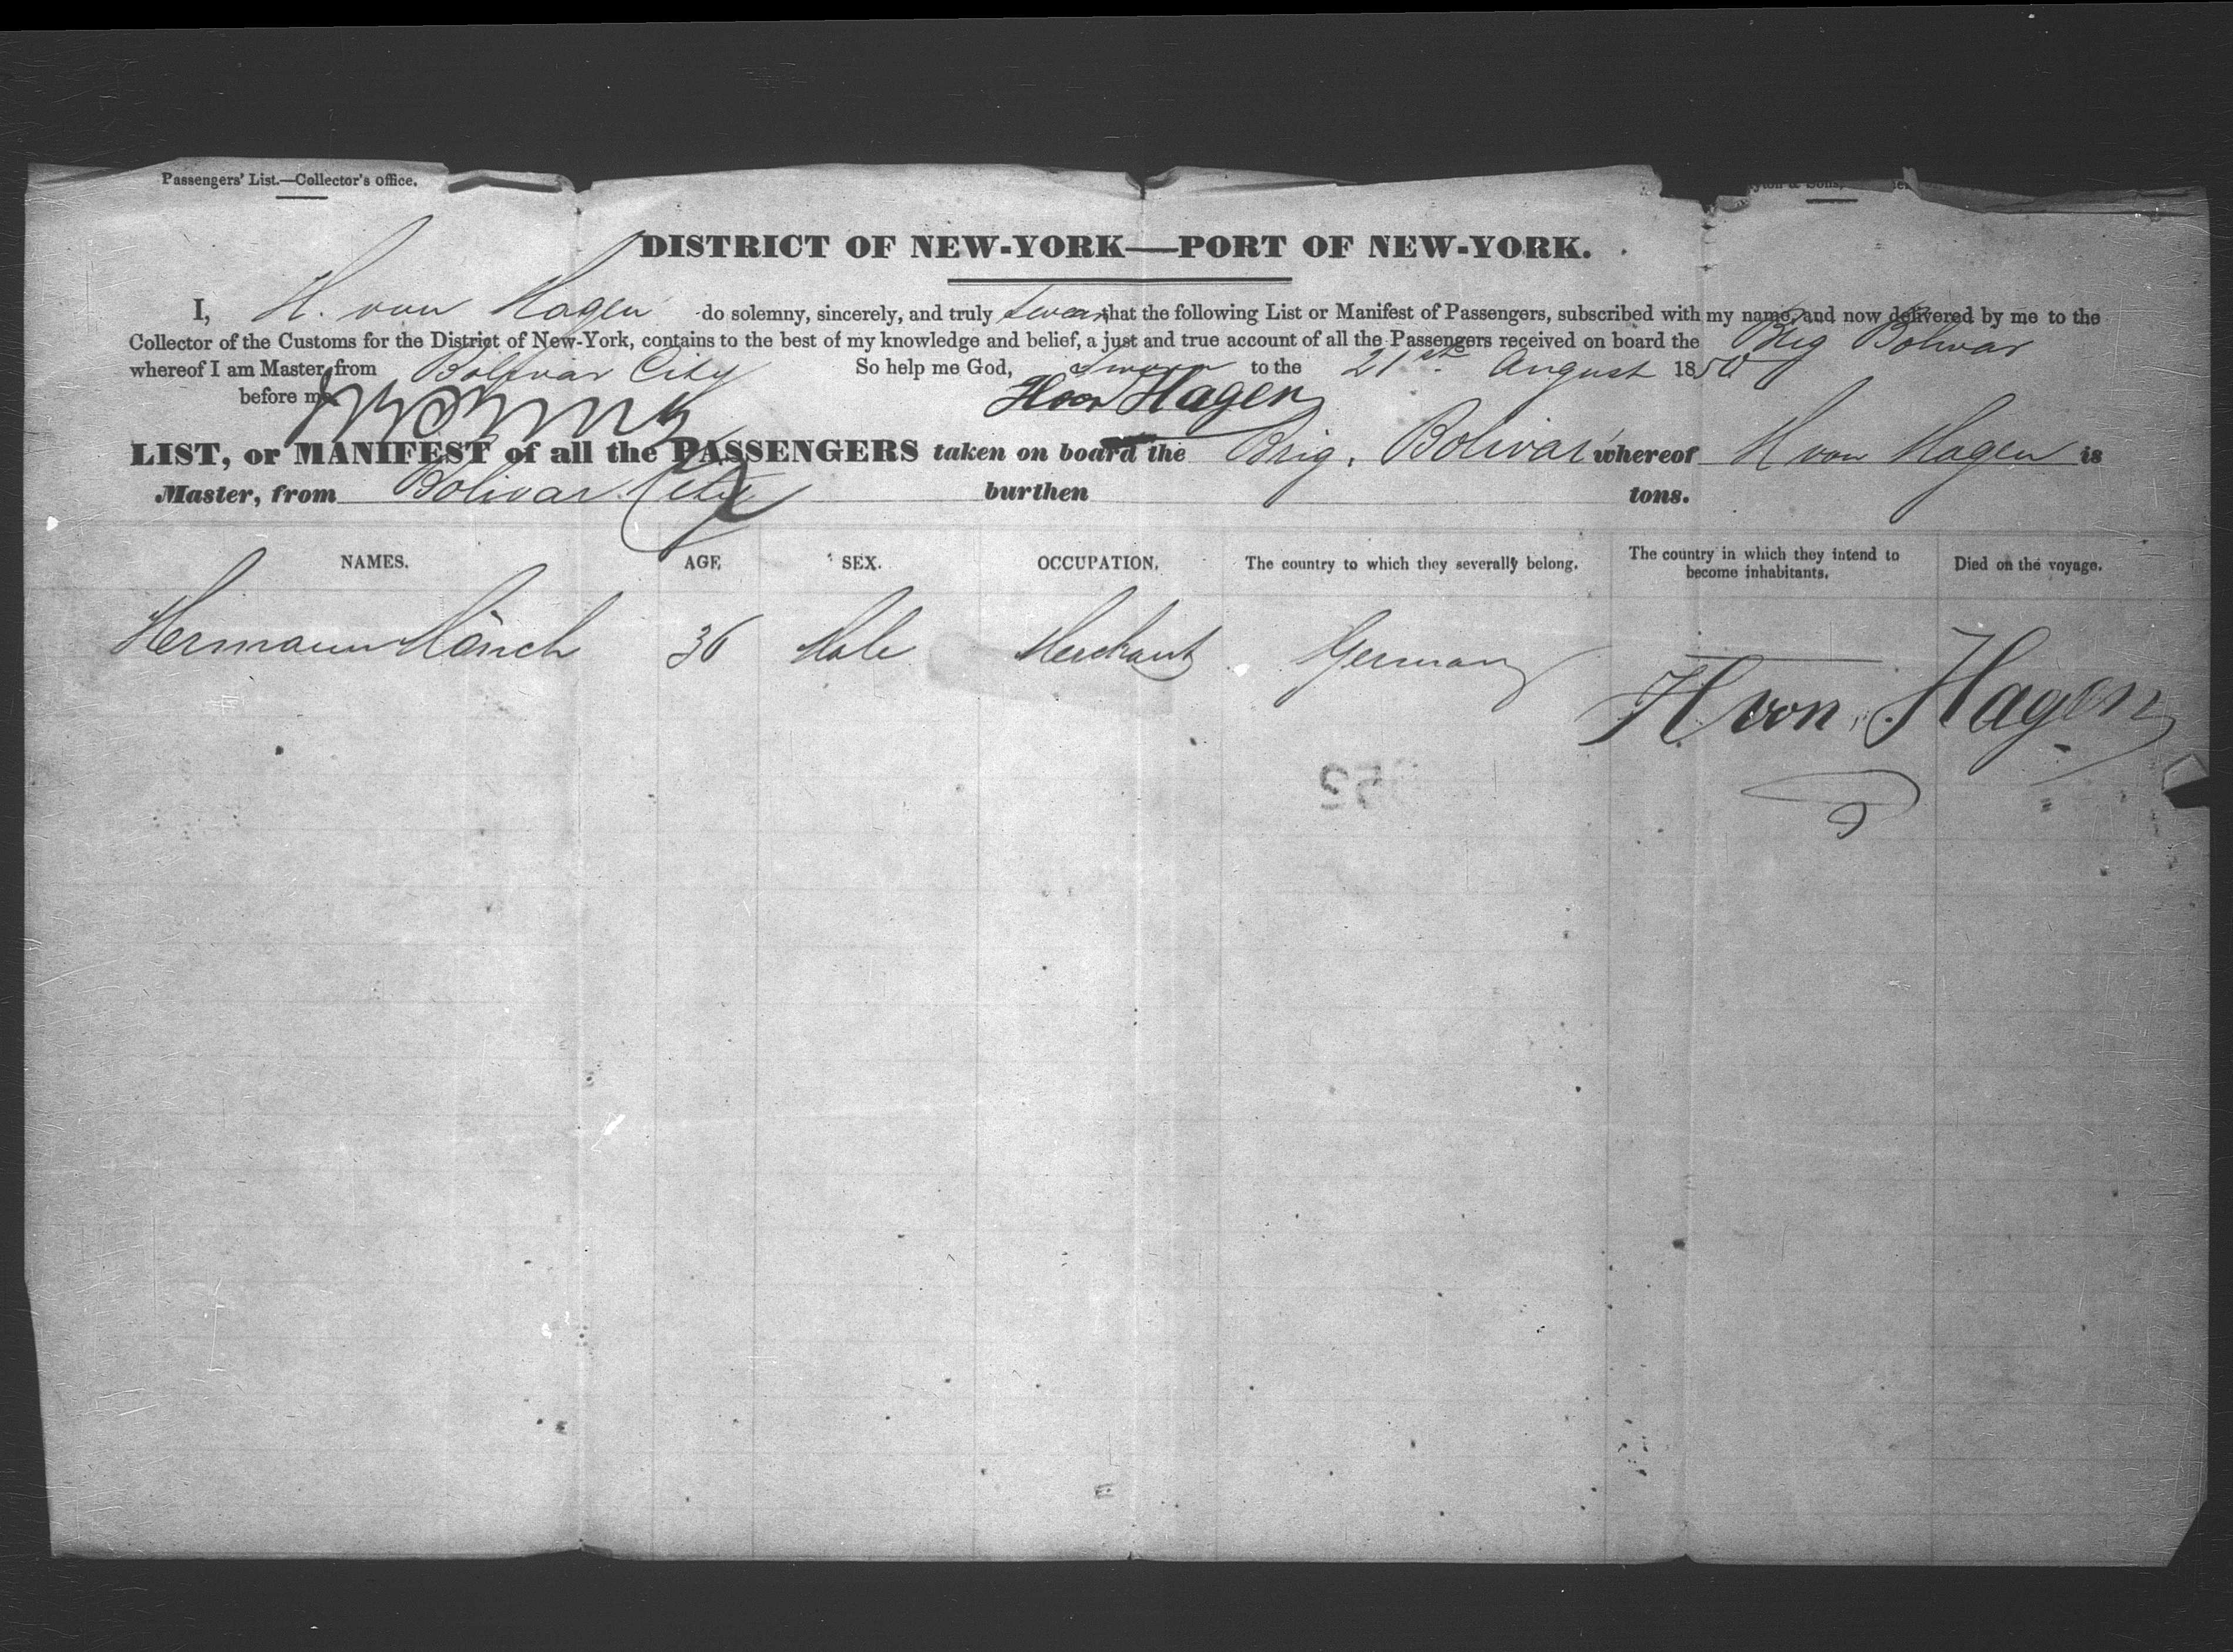 Passengers' List.—Collector's office.
DISTRICT OF NEW-YORK—PORT OF NEW-YORK.
I, H. von Hagen do solemny, sincerely, and truly swear that the following List or Manifest of Passengers, subscribed with my name, and now delivered by me to the
Collector of the Customs for the District of New-York, contains to the best of my knowledge and belief, a just and true account of all the Passengers received on board the Brig Bolivar
whereof I am Master, from Bolivar City So help me God, Sworn to the 21st August 1850
before me H von Hagen
LIST, or MANIFEST of all the PASSENGERS taken on board the Brig. Bolivar whereof H von Hagen is
Master, from Bolivar City burthen tons.
NAMES. AGE SEX. OCCUPATION. The country to which they severally belong. The country in which they intend to become inhabitants. Died on the voyage.
Hermann Mönch 36 Male Merchant Germany
H von Hagen